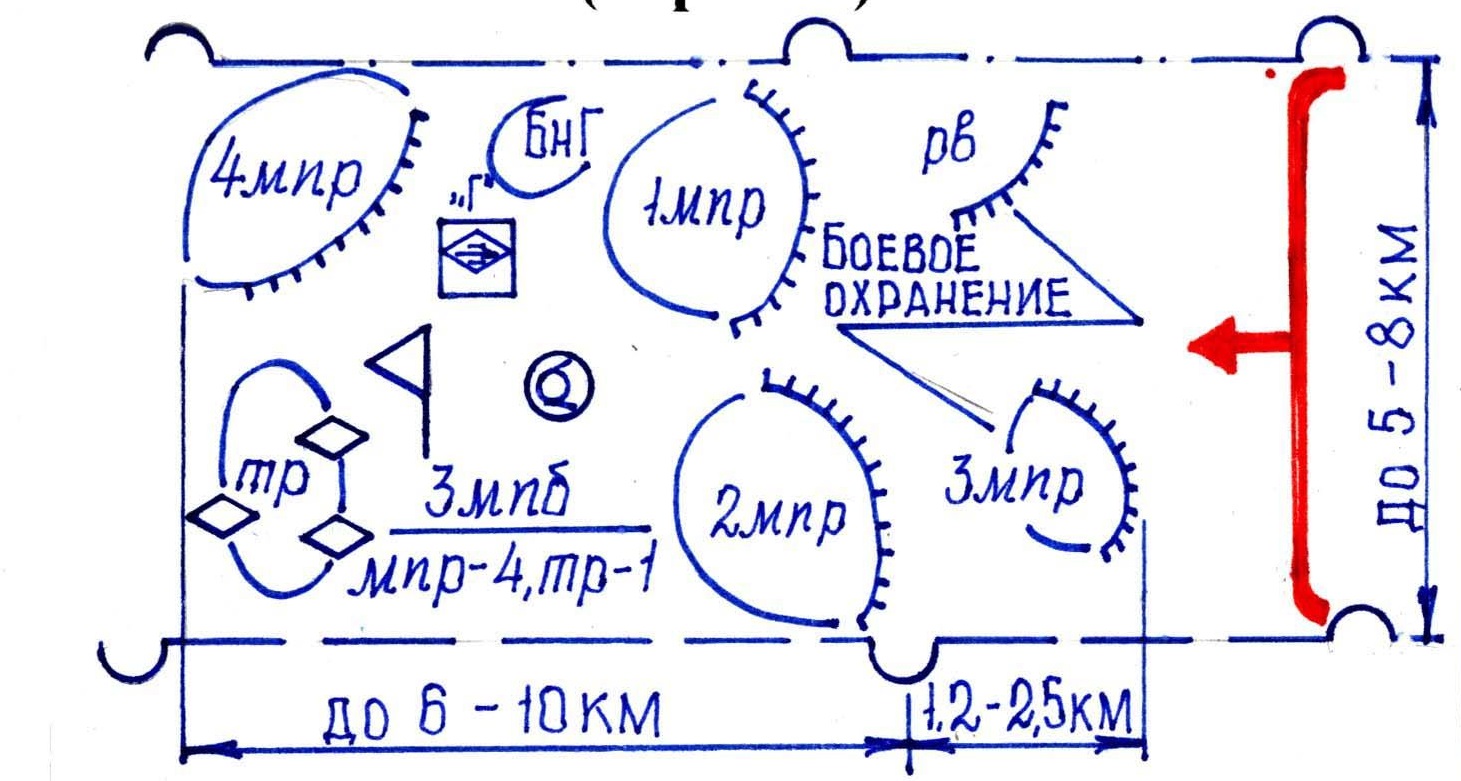 4мпр
БнГ
„Г"
1мпр
рв
БОЕВОЕ
ОХРАНЕНИЕ
тр
3мпб
мпр-4, тр-1
2мпр
3мпр
ДО 5-8КМ
ДО 6-10КМ
1,2-2,5КМ